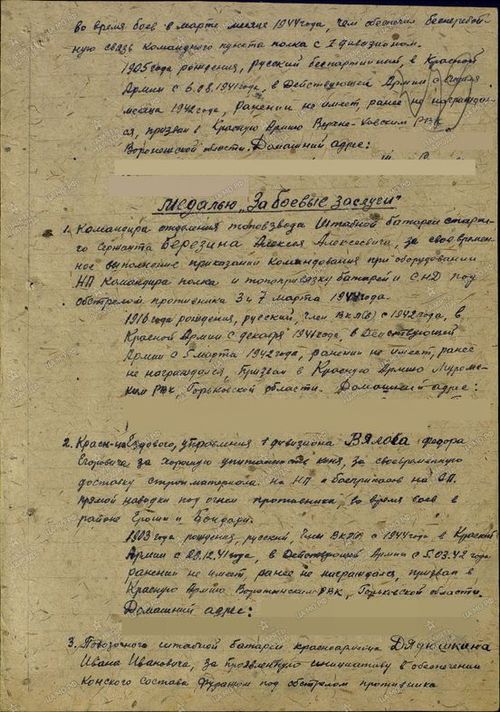 во время боев в марте месяце 1944 года, чем обеспечил бесперебой-
ную связь командного пункта полка с I дивизионом.
1905 года рождения, русский беспартийный, в Красной
Армии с 6.08.1941 года, в Действующей Армии с
месяца 1942 года, Ранений не имеет, ранее не награждал-
ся, призван в Красную Армию Верхне-Хавским РВК
Воронежской области. Домашний адрес:
Медалью „За боевые заслуги"
1. Командира отделения топовзвода Штабной батареи старше-
го сержанта Березина Алексея Алексеевича, за своевремен-
ное выполнение приказаний Командования при оборудовании
НП Командира полка и топопривязку батарей и СНД под
обстрелом противника 3 и 7 марта 1944 года.
1916 года рождения, русский, член ВКП(б) с 1942 года, в
Красной Армии с декабря 1941 года, в Действующей
Армии с 5 марта 1942 года, ранений не имеет, ранее
не награждался, Призван в Красную Армию Муромс-
ким РВК, Горьковской области. Домашний адрес:
2. Красн-ца Ездового, управления 1 дивизиона Вялова Федора
Егоровича за хорошую упитанность коня, за своевременную
доставку стройматериала на НП и боеприпасов на ОП.
прямой наводки под огнем противника, во время боев в
районе Ерошки и Бондари.
1903 года рождения, русский, член ВКП(б) с 1944 года, в Красной
Армии с 22.12.41 года, в Действующей Армии с 5.03.42 года
ранений не имеет, ранее не награждался, призван в
Красную Армию РВК, Горьковской области.
Домашний адрес:
3. Повозочного штабной батареи красноармейца Дядюшкина
Ивана Ивановича, за проявленную инициативу в обеспечении
Конского Состава Фуражом под обстрелом противника